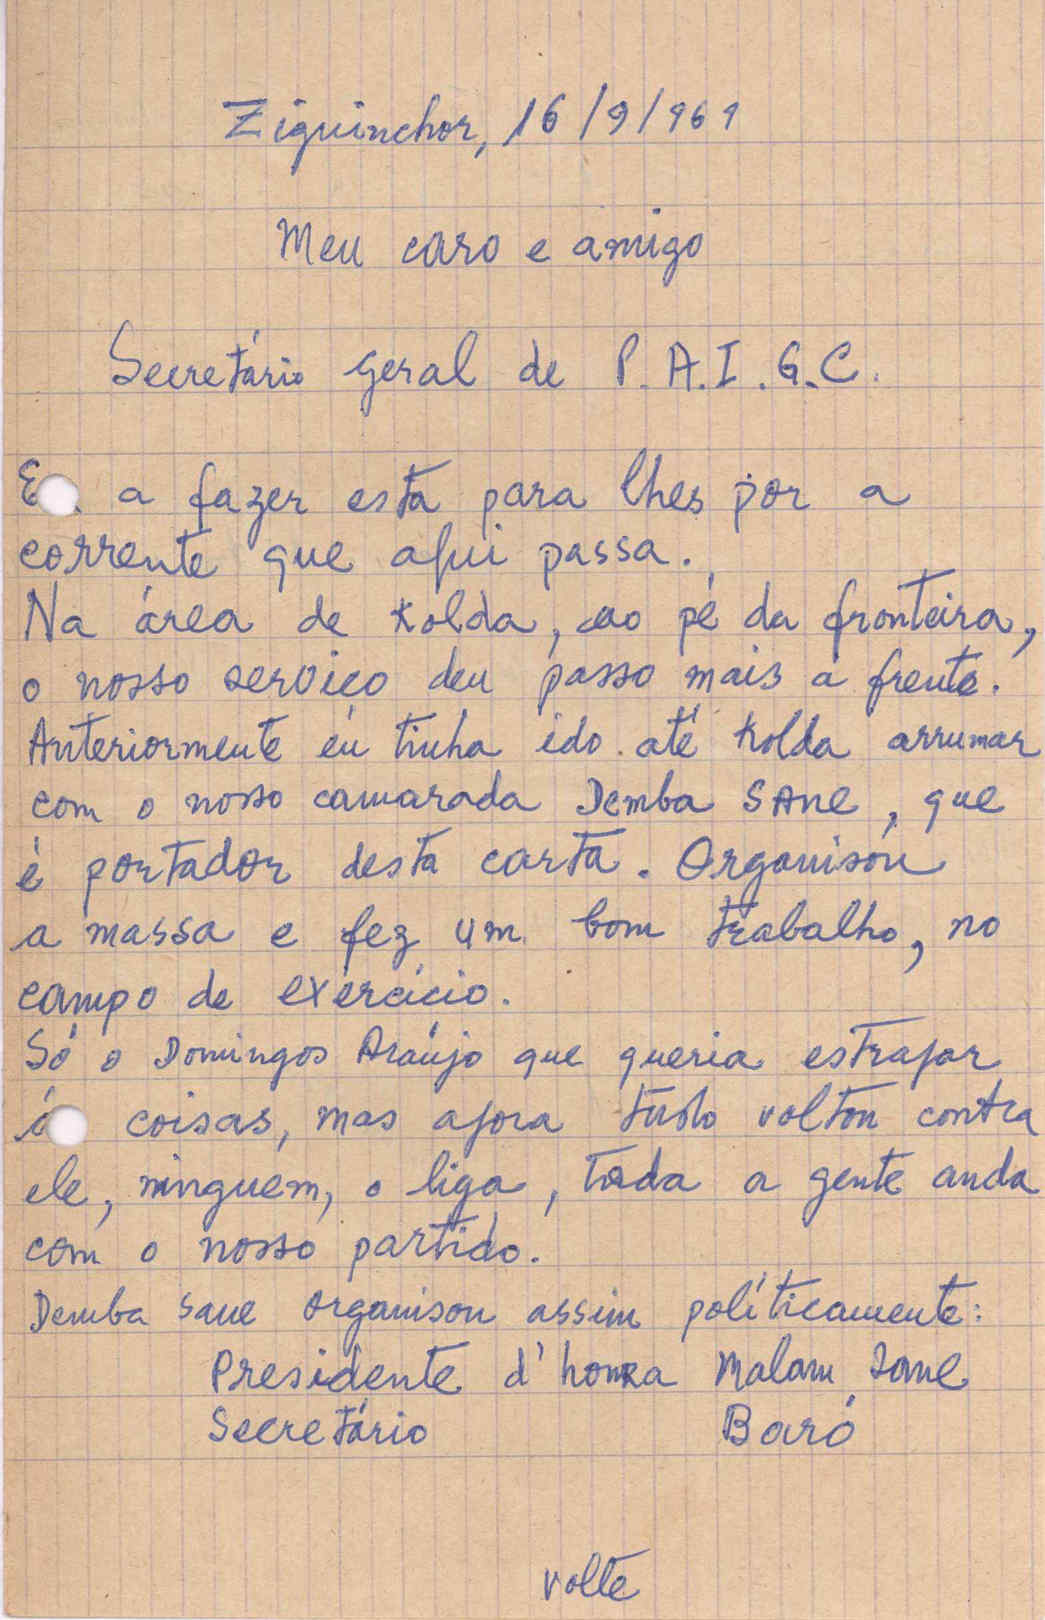 Ziguinchor, 16/9/961
Meu caro e amigo
Secretário geral de P.A.I.G.C.
a fazer esta para lhes pôr a
corrente que aqui passa.
Na área de Kolda, ao pé da fronteira,
o nosso serviço deu passo mais á frente.
Anteriormente eu tinha ido até Kolda arrumar
com o nosso camarada Demba Sane, que
é portador desta carta. Organisou
a massa e fez um bom trabalho, no
campo de exercício.
Só o Domingos Araújo que queria estragar
coisas, mas agora tudo voltou contra
ele, ninguem, o liga, toda a gente anda
com o nosso partido.
Demba Sane organisou assim políticamente:
Presidente d'honra Malam Sane
Secretário Baró
volte